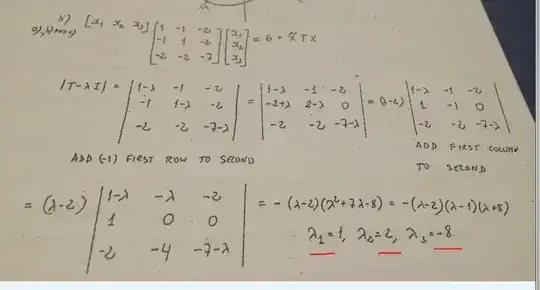 [x₁ x₂ x₃] [1 -1 -2; -1 1 -2; -2 -2 -7] [x₁; x₂; x₃] = 6 = x̃ T x
|T-λI| = |1-λ -1 -2; -1 1-λ -2; -2 -2 -7-λ| = |1-λ -1 -2; -2+λ 2-λ 0; -2 -2 -7-λ| = (λ-2) |1-λ -1 -2; 1 -1 0; -2 -2 -7-λ|
ADD (-1) FIRST ROW TO SECOND
ADD FIRST COLUMN
TO SECOND
= (λ-2) |1-λ -λ -2; 1 0 0; -2 -4 -7-λ| = -(λ-2)(λ²+7λ-8) = -(λ-2)(λ-1)(λ+8)
λ₁=1, λ₂=2, λ₃=-8